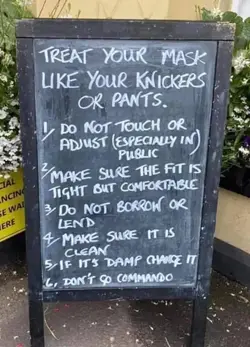 TREAT YOUR MASK
LIKE YOUR KNICKERS
OR PANTS.
1/ DO NOT TOUCH OR
ADJUST (ESPECIALLY IN)
PUBLIC
2/ MAKE SURE THE FIT IS
TIGHT BUT COMFORTABLE
3/ DO NOT BORROW OR
LEND
4/ MAKE SURE IT IS
CLEAN
5/ IF IT'S DAMP CHANGE IT
6, DON'T GO COMMANDO